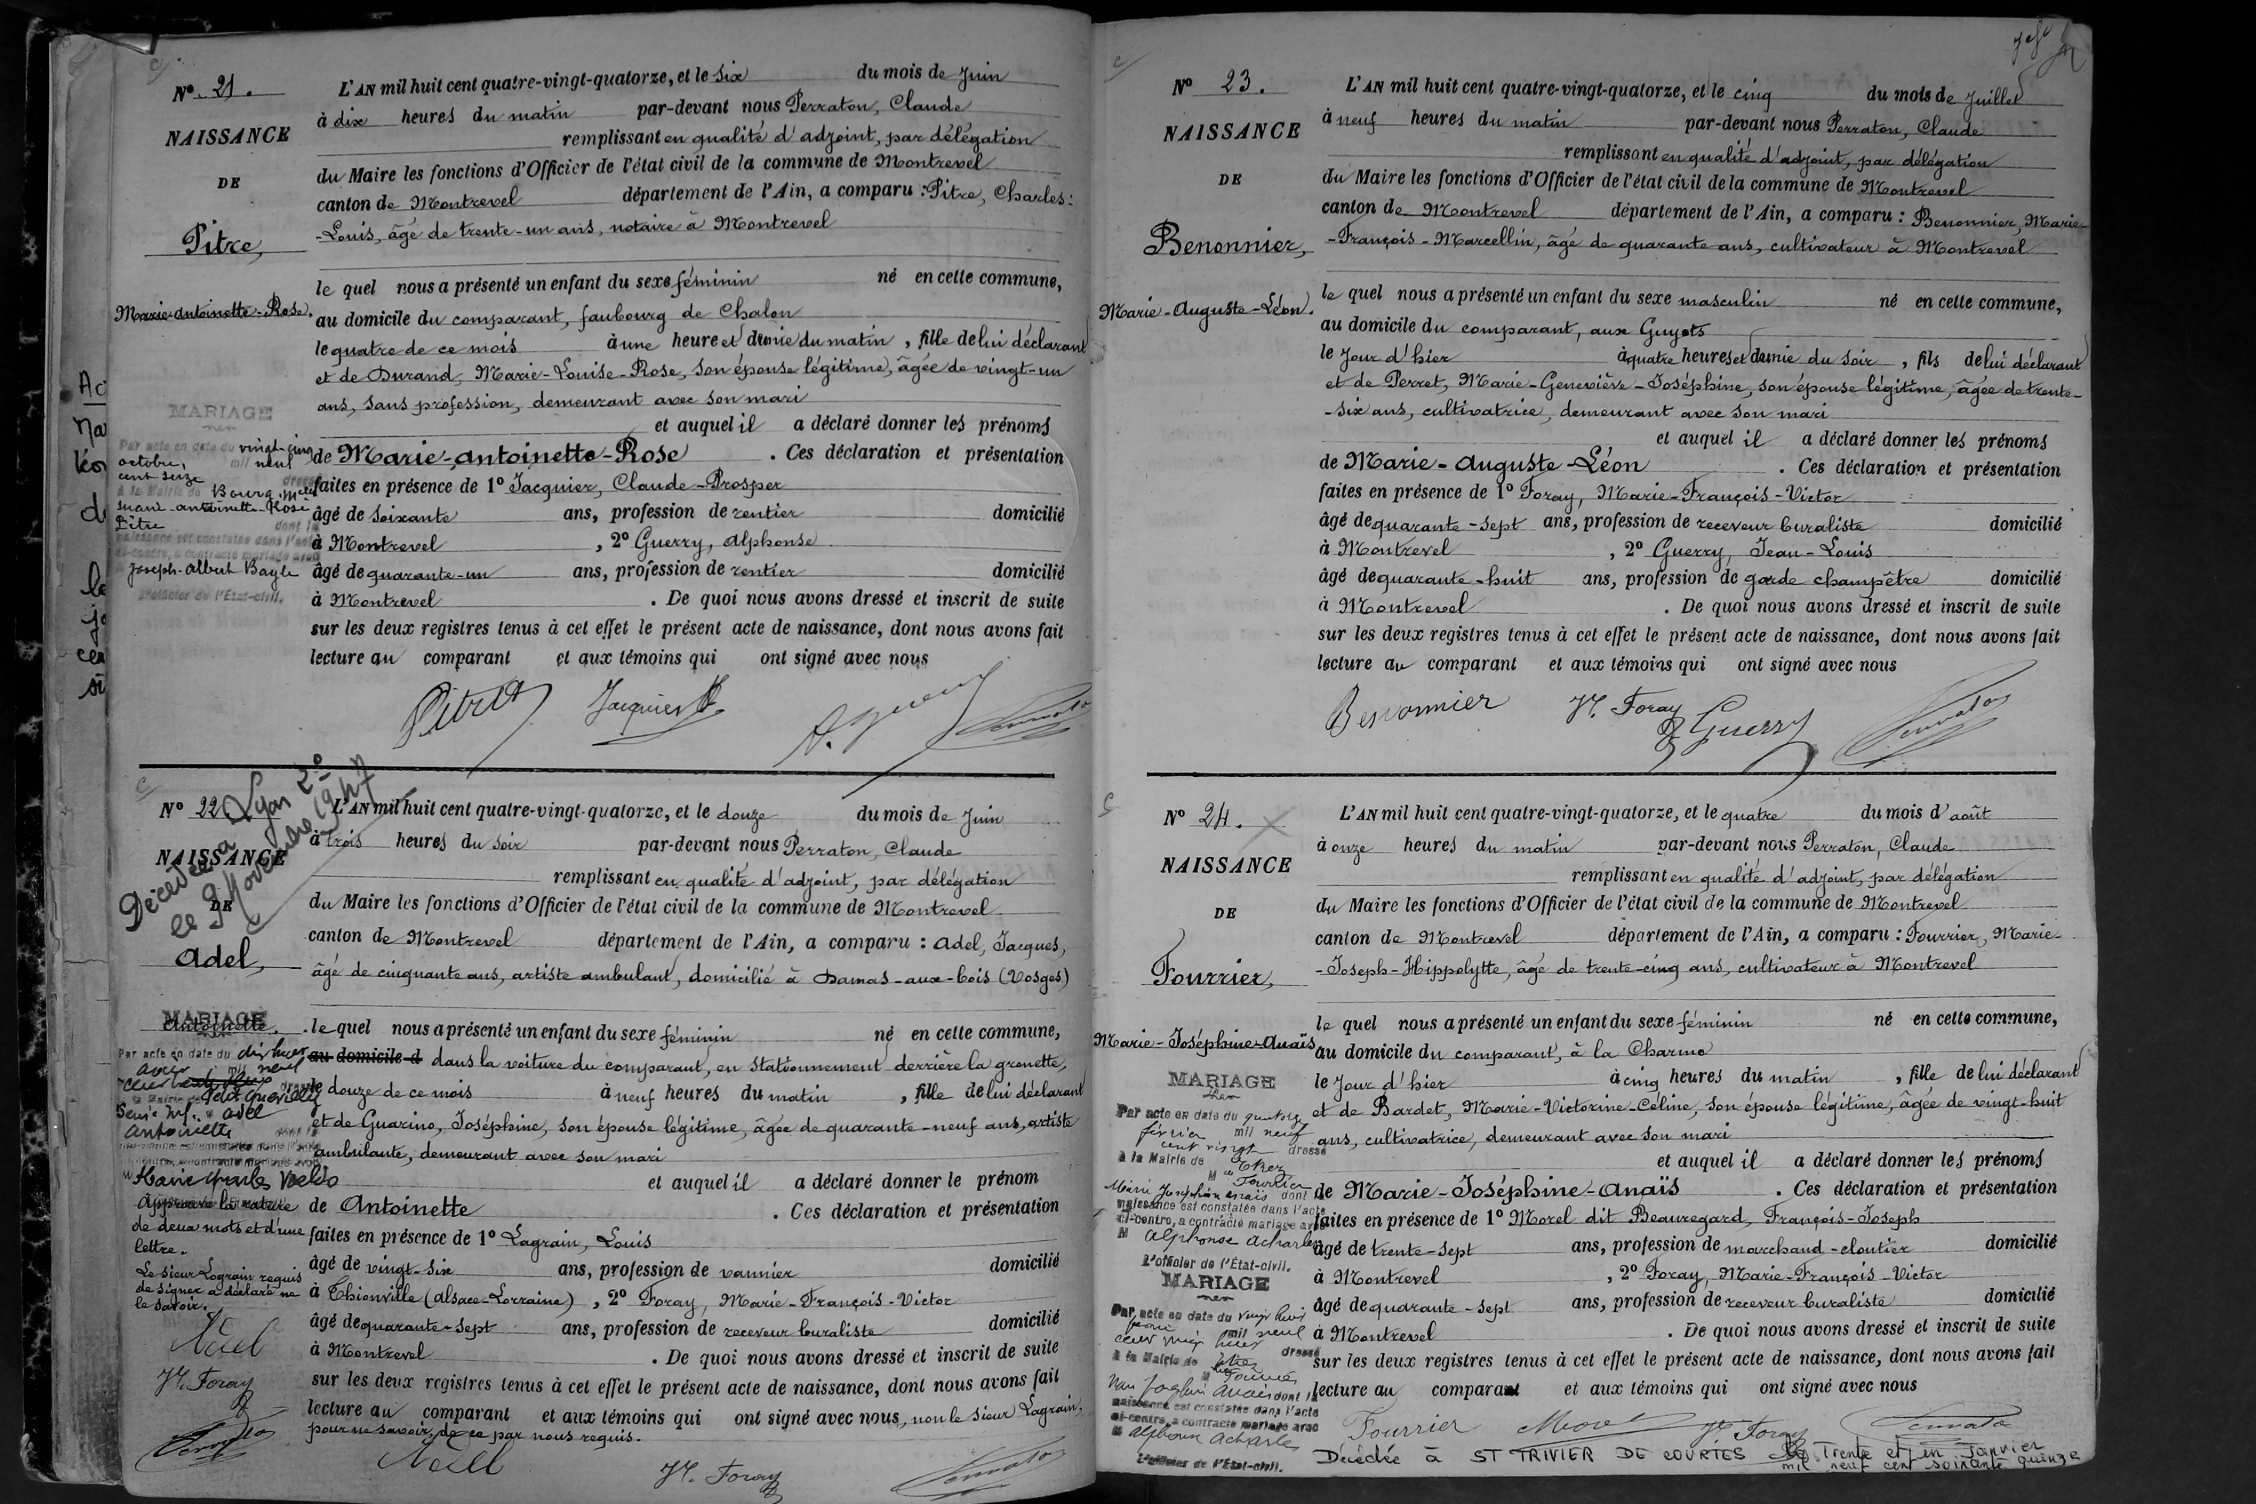 Nº 21.
NAISSANCE
DE
Pitre,
Marie-Antoinette-Rose.
L'AN mil huit cent quatre-vingt-quatorze, et le six du mois de Juin
à dix heures du matin par-devant nous Perraton, Claude
remplissant en qualité d'adjoint, par délégation
du Maire les fonctions d'Officier de l'état civil de la commune de Montrevel
canton de Montrevel département de l'Ain, a comparu : Pitre, Charles-
-Louis, âgé de trente-un ans, notaire à Montrevel
le quel nous a présenté un enfant du sexe féminin né en cette commune,
au domicile du comparant, faubourg de Chalon
le quatre de ce mois à une heure et demie du matin, fille de lui déclarant
et de Durand, Marie-Louise-Rose, son épouse légitime, âgée de vingt-un
ans, sans profession, demeurant avec son mari
et auquel il a déclaré donner les prénoms
de Marie-Antoinette-Rose. Ces déclaration et présentation
faites en présence de 1º Jacquier, Claude-Prosper
âgé de soixante ans, profession de rentier domicilié
à Montrevel, 2º Guerry, Alphonse
âgé de quarante-un ans, profession de rentier domicilié
à Montrevel. De quoi nous avons dressé et inscrit de suite
sur les deux registres tenus à cet effet le présent acte de naissance, dont nous avons fait
lecture au comparant et aux témoins qui ont signé avec nous
MARIAGE
Par acte en date du vingt-cinq
octobre, mil neuf
cent seize dressé
à la Mairie de Bourg, Melle
Marie-Antoinette-Rose
Pitre dont la
naissance est constatée dans l'acte
ci-contre, a contracté mariage avec
Joseph-Albert Bayle
L'officier de l'État-civil.
Jacquier
Nº 22
NAISSANCE
DE
Adel,
Antoinette.
Décédée à Lyon 2º
le 9 Novembre 1947
L'AN mil huit cent quatre-vingt-quatorze, et le douze du mois de Juin
à trois heures du soir par-devant nous Perraton, Claude
remplissant en qualité d'adjoint, par délégation
du Maire les fonctions d'Officier de l'état civil de la commune de Montrevel
canton de Montrevel département de l'Ain, a comparu : Adel, Jacques,
âgé de cinquante ans, artiste ambulant, domicilié à Damas-aux-bois (Vosges)
le quel nous a présenté un enfant du sexe féminin né en cette commune,
au domicile d dans la voiture du comparant, en stationnement derrière la grenette,
le douze de ce mois à neuf heures du matin, fille de lui déclarant
et de Guarino, Joséphine, son épouse légitime, âgée de quarante-neuf ans, artiste
ambulante, demeurant avec son mari
et auquel il a déclaré donner le prénom
de Antoinette. Ces déclaration et présentation
faites en présence de 1º Lagrain, Louis
âgé de vingt-six ans, profession de vannier domicilié
à Thionville (Alsace-Lorraine), 2º Foray, Marie-François-Victor
âgé de quarante-sept ans, profession de receveur buraliste domicilié
à Montrevel. De quoi nous avons dressé et inscrit de suite
sur les deux registres tenus à cet effet le présent acte de naissance, dont nous avons fait
lecture au comparant et aux témoins qui ont signé avec nous, non le sieur Lagrain,
pour ne savoir, de ce par nous requis.
MARIAGE
Par acte en date du dix huit
avril mil neuf
dressé
à la Mairie de Petit Quevilly
Adel
Antoinette dont la
Approuvé la rature
de deux mots et d'une
lettre.
Le sieur Lagrain requis
de signer a déclaré ne
le savoir.
Foray
Foray
Nº 23.
NAISSANCE
DE
Benonnier,
Marie-Auguste-Léon.
L'AN mil huit cent quatre-vingt-quatorze, et le cinq du mois de Juillet
à neuf heures du matin par-devant nous Perraton, Claude
remplissant en qualité d'adjoint, par délégation
du Maire les fonctions d'Officier de l'état civil de la commune de Montrevel
canton de Montrevel département de l'Ain, a comparu : Benonnier, Marie-
-François-Marcellin, âgé de quarante ans, cultivateur à Montrevel
le quel nous a présenté un enfant du sexe masculin né en cette commune,
au domicile du comparant, aux Guyots
le jour d'hier à quatre heures et demie du soir, fils de lui déclarant
et de Perret, Marie-Geneviève-Joséphine, son épouse légitime, âgée de trente-
-six ans, cultivatrice, demeurant avec son mari
et auquel il a déclaré donner les prénoms
de Marie-Auguste-Léon. Ces déclaration et présentation
faites en présence de 1º Foray, Marie-François-Victor
âgé de quarante-sept ans, profession de receveur buraliste domicilié
à Montrevel, 2º Guerry, Jean-Louis
âgé de quarante-huit ans, profession de garde champêtre domicilié
à Montrevel. De quoi nous avons dressé et inscrit de suite
sur les deux registres tenus à cet effet le présent acte de naissance, dont nous avons fait
lecture au comparant et aux témoins qui ont signé avec nous
Benonnier Foray Guerry
Nº 24.
NAISSANCE
DE
Fourrier,
Marie-Joséphine-Anaïs
L'AN mil huit cent quatre-vingt-quatorze, et le quatre du mois d'août
à onze heures du matin par-devant nous Perraton, Claude
remplissant en qualité d'adjoint, par délégation
du Maire les fonctions d'Officier de l'état civil de la commune de Montrevel
canton de Montrevel département de l'Ain, a comparu : Fourrier, Marie-
-Joseph-Hippolytte, âgé de trente-cinq ans, cultivateur à Montrevel
le quel nous a présenté un enfant du sexe féminin né en cette commune,
au domicile du comparant, à la Charme
le jour d'hier à cinq heures du matin, fille de lui déclarant
et de Bardet, Marie-Victorine-Céline, son épouse légitime, âgée de vingt-huit
ans, cultivatrice, demeurant avec son mari
et auquel il a déclaré donner les prénoms
de Marie-Joséphine-Anaïs. Ces déclaration et présentation
faites en présence de 1º Morel dit Beauregard, François-Joseph
âgé de trente-sept ans, profession de marchand-cloutier domicilié
à Montrevel, 2º Foray, Marie-François-Victor
âgé de quarante-sept ans, profession de receveur buraliste domicilié
à Montrevel. De quoi nous avons dressé et inscrit de suite
sur les deux registres tenus à cet effet le présent acte de naissance, dont nous avons fait
lecture au comparant et aux témoins qui ont signé avec nous
MARIAGE
Par acte en date du quatorze
février mil neuf
cent vingt dressé
à la Mairie de
Fourrier
Marie Joséphine Anaïs dont la
naissance est constatée dans l'acte
ci-contre, a contracté mariage avec
M Alphonse Acharles
L'officier de l'État-civil.
MARIAGE
Par acte en date du
mil neuf
dressé
à la Mairie de
dont la
naissance est constatée dans l'acte
ci-contre, a contracté mariage avec
M Alphonse Acharles
L'officier de l'État-civil.
Fourrier Morel Foray
Décédée à ST TRIVIER DE COURTES le Trente et un Janvier
mil neuf cent soixante quinze